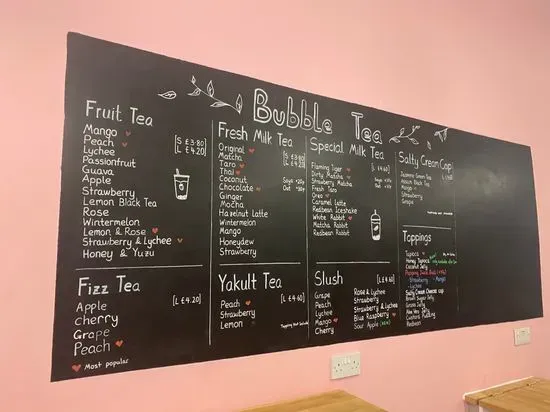 Bubble Tea
Fruit Tea
[S £3.80]
[L £4.20]
Mango
Peach
Lychee
Passionfruit
Guava
Apple
Strawberry
Lemon Black Tea
Rose
Wintermelon
Lemon & Rose
Strawberry & Lychee
Honey & Yuzu
Fresh Milk Tea
[S £3.80]
[L £4.20]
Original
Matcha
Taro
Thai
Coconut
Chocolate
Ginger
Mocha
Hazelnut Latte
Wintermelon
Mango
Honeydew
Strawberry
Soya +20p
Oat +30p
Special Milk Tea
[L £4.60]
Flaming Tiger
Dirty Matcha
Strawberry Matcha
Fresh Taro
Oreo
Caramel Latte
Redbean Iceshake
White Rabbit
Matcha Rabbit
Redbean Rabbit
Salty Cream Cap
Jasmine Green Tea
Assam Black Tea
Mango
Strawberry
Grape
Toppings
Tapioca
Honey Tapioca
Coconut Jelly
Popping Juice Ball
- Strawberry - Mango
- Lychee
Salty Cream Cheese cap
Brown Sugar Jelly
Grass Jelly
Aloe Vera
Custard Pudding
Redbean
Fizz Tea
[L £4.20]
Apple
cherry
Grape
Peach
Most popular
Yakult Tea
[L £4.60]
Peach
Strawberry
Lemon
Topping Not Include
Slush
[L £4.60]
Grape
Peach
Lychee
Mango
Cherry
Rose & Lychee
Strawberry
Strawberry & Lychee
Blue Raspberry
Sour Apple (new)